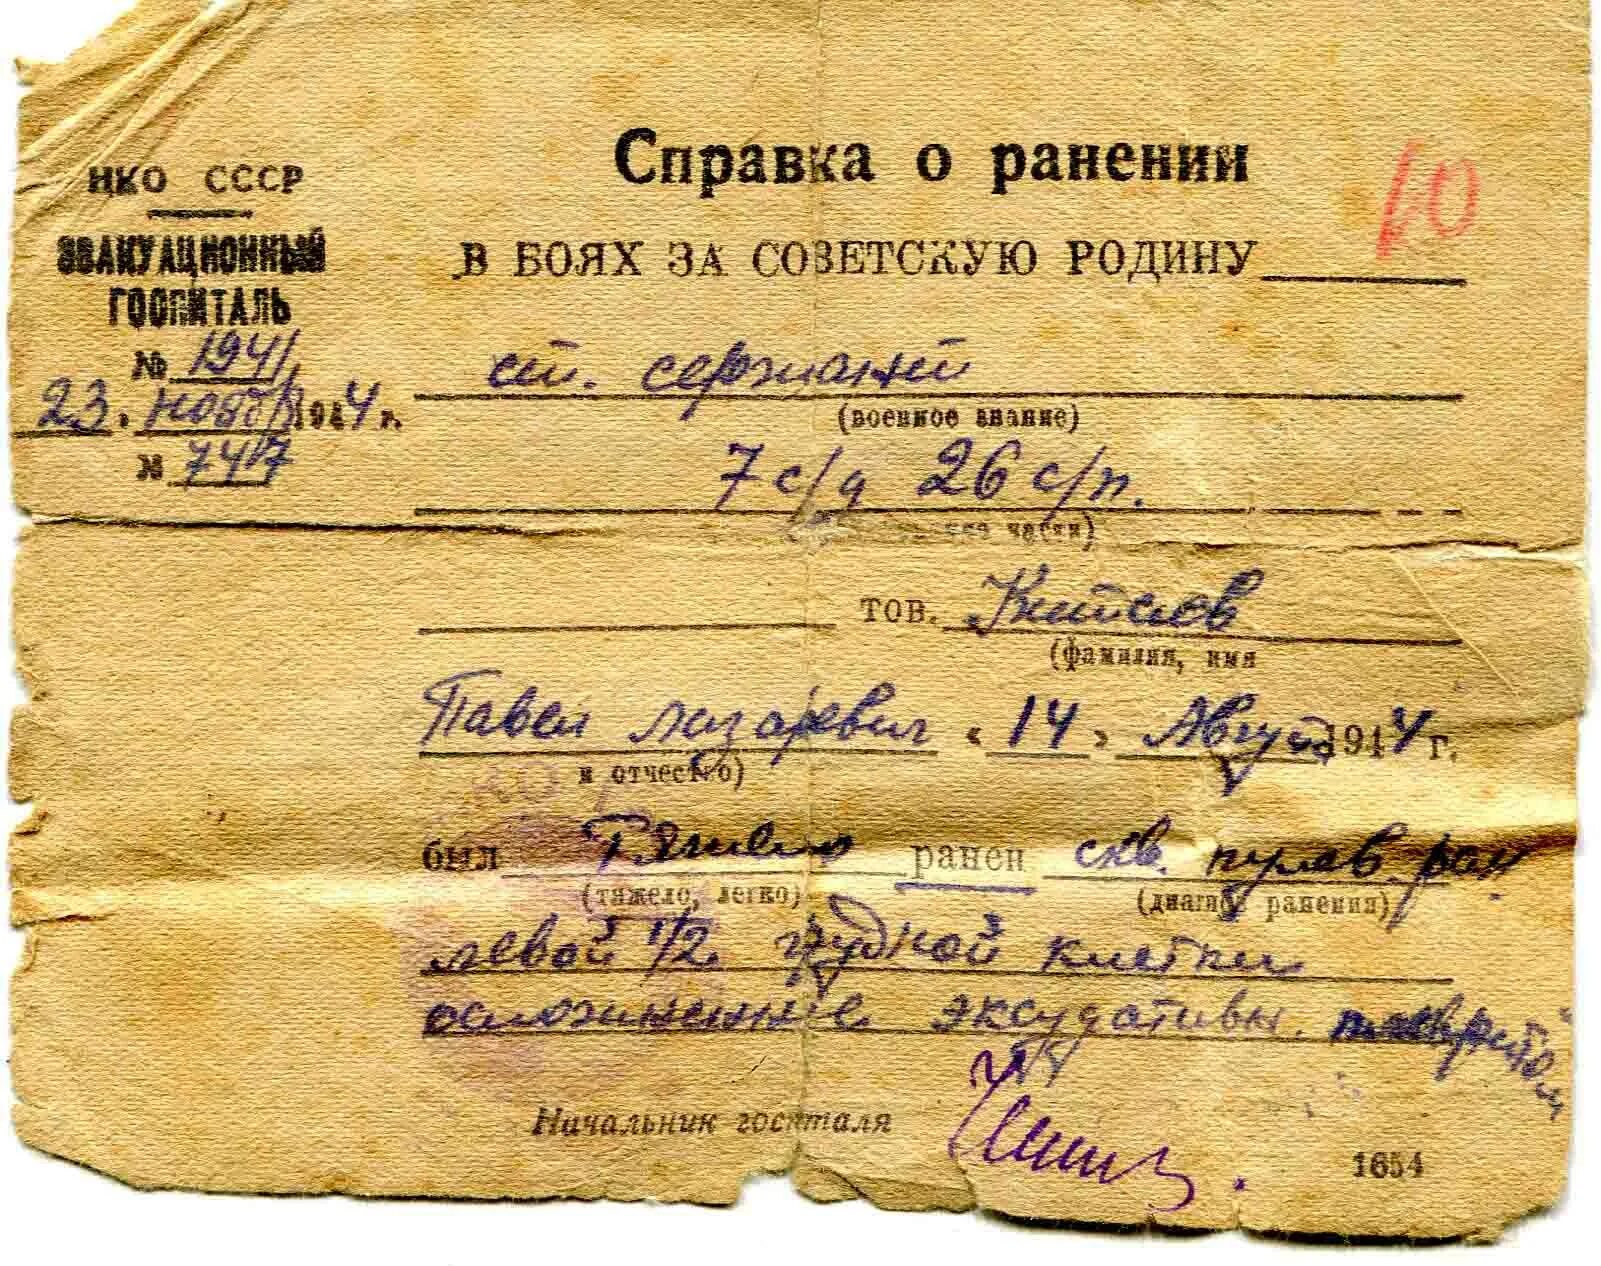 Справка о ранении
10
В БОЯХ ЗА СОВЕТСКУЮ РОДИНУ
НКО СССР
ЭВАКУАЦИОННЫЙ
ГОСПИТАЛЬ
№ 1941
23. ноября 1944 г.
№ 7417
ст. сержант
(военное звание)
7 с/д 26 с/п.
части)
тов.
(фамилия, имя
Павел Лазаревич «14» Август 1944 г.
и отчество)
был Тяжело ранен скв. пулев. ран.
(тяжело, легко) (диагноз ранения)
левой 1/2 грудной клетки
осложненные эксудативн. плевритом
Начальник госпиталя
1654